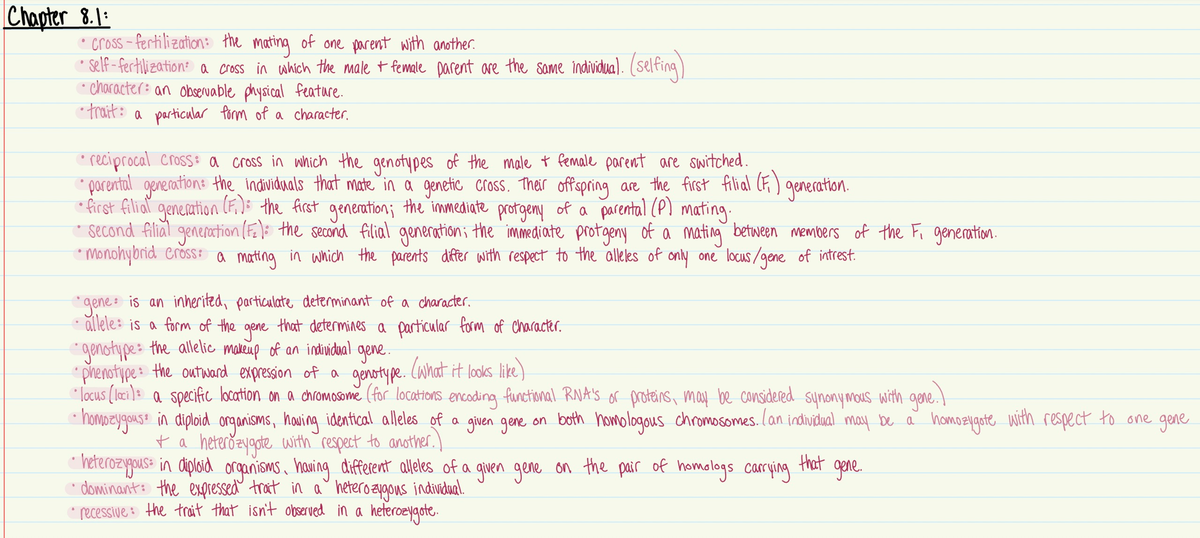 Chapter 8.1:
• cross-fertilization: the mating of one parent with another.
• self-fertilization: a cross in which the male + female parent are the same individual. (selfing)
• character: an observable physical feature.
• trait: a particular form of a character.
• reciprocal cross: a cross in which the genotypes of the male + female parent are switched.
• parental generation: the individuals that mate in a genetic cross. Their offspring are the first filial (F₁) generation.
• first filial generation (F₁): the first generation; the immediate protgeny of a parental (P) mating.
• second filial generation (F₂): the second filial generation; the immediate protgeny of a mating between members of the F₁ generation.
• monohybrid cross: a mating in which the parents differ with respect to the alleles of only one locus/gene of intrest.
• gene: is an inherited, particulate determinant of a character.
• allele: is a form of the gene that determines a particular form of character.
• genotype: the allelic makeup of an individual gene.
• phenotype: the outward expression of a genotype. (what it looks like)
• locus (loci): a specific location on a chromosome (for locations encoding functional RNA's or proteins, may be considered synonymous with gene.)
• homozygous: in diploid organisms, having identical alleles of a given gene on both homologous chromosomes. (an individual may be a homozygote with respect to one gene
+ a heterozygote with respect to another.)
• heterozygous: in diploid organisms, having different alleles of a given gene on the pair of homologs carrying that gene.
• dominant: the expressed trait in a heterozygous individual.
• recessive: the trait that isn't observed in a heterozygote.